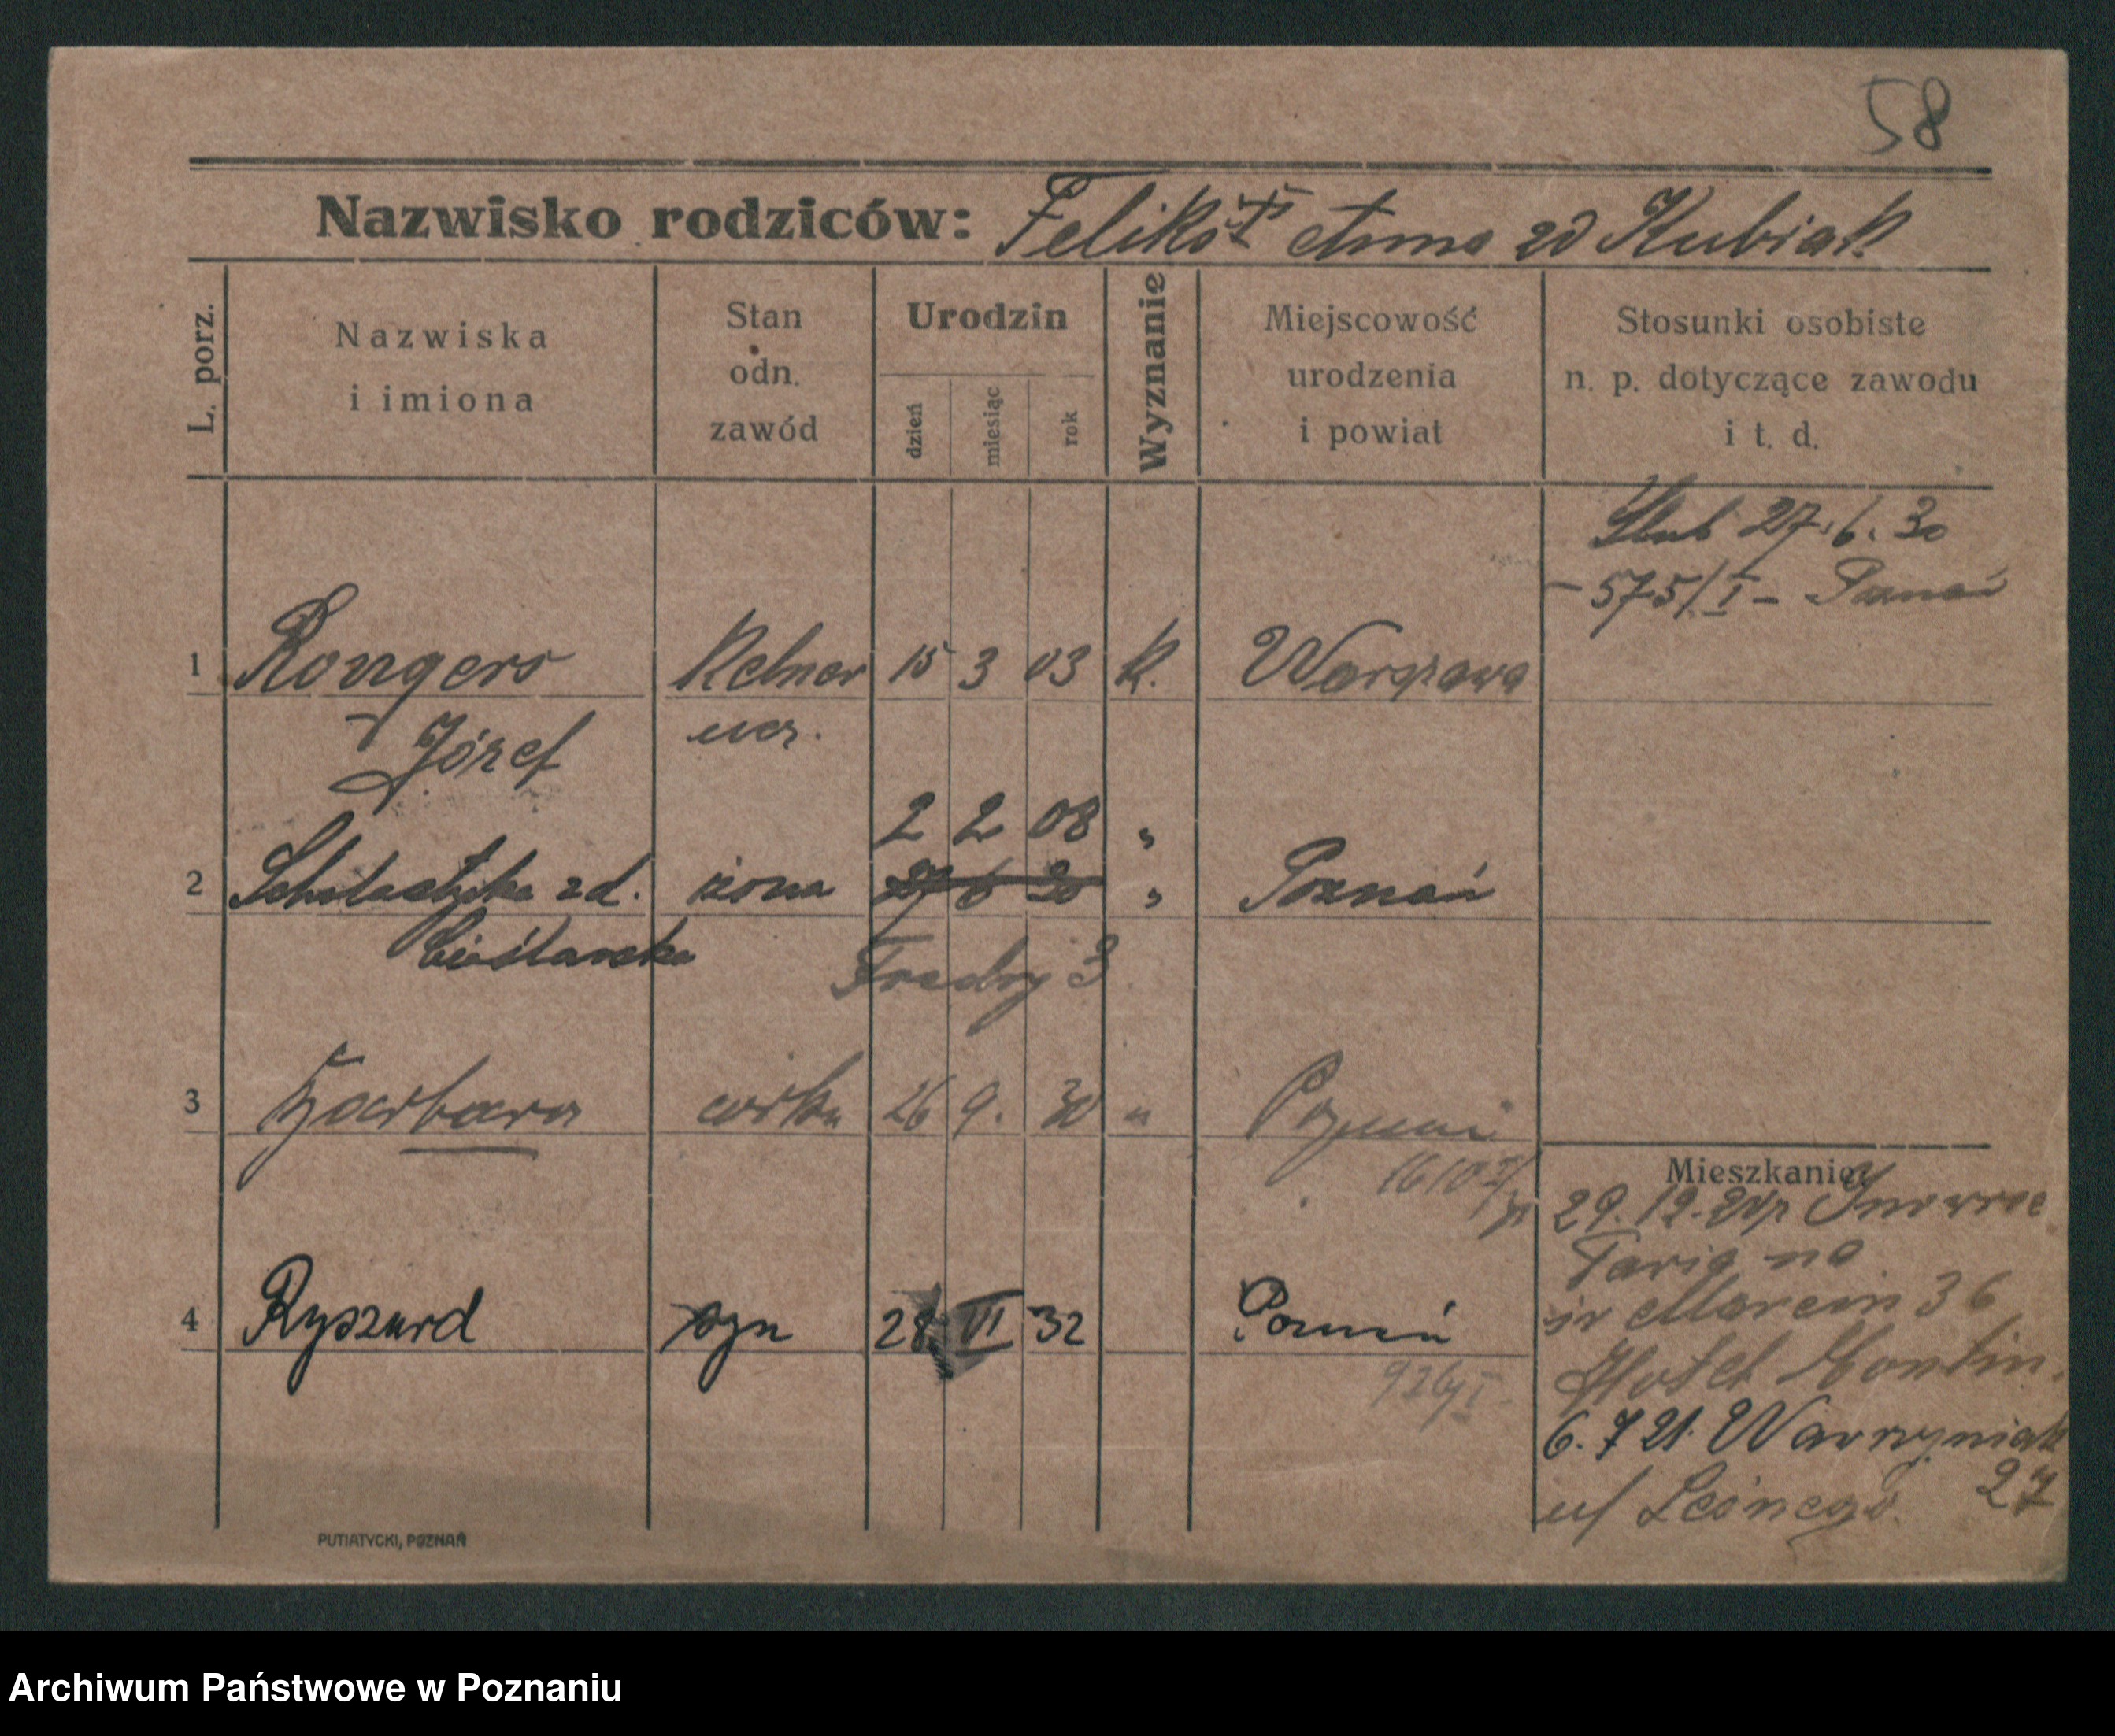 58
Nazwisko rodziców: Feliks † i Anna zd Kubiak
L. porz.
Nazwiska
i imiona
Stan
odn.
zawód
Urodzin
dzień
miesiąc
rok
Wyznanie
Miejscowość
urodzenia
i powiat
Stosunki osobiste
n. p. dotyczące zawodu
i t. d.
Ślub 27.6.30
– 575/I – Poznań
1 Rongers Kelner 15 3 03 K. Warszawa
Józef
2 2 08 "
2 Scholastyka zd. żona 27 6 30 " Poznań
Cieślarska
Fredry 3
3 Barbara córka 26 9. 30 " Poznań
Mieszkanie
29.12.
4 Ryszard syn 28 VI 32 Poznań
św Marcin 36
Hotel
926/I
6.7 21. Wawrzyniak
27
PUTIATYCKI, POZNAŃ
Archiwum Państwowe w Poznaniu